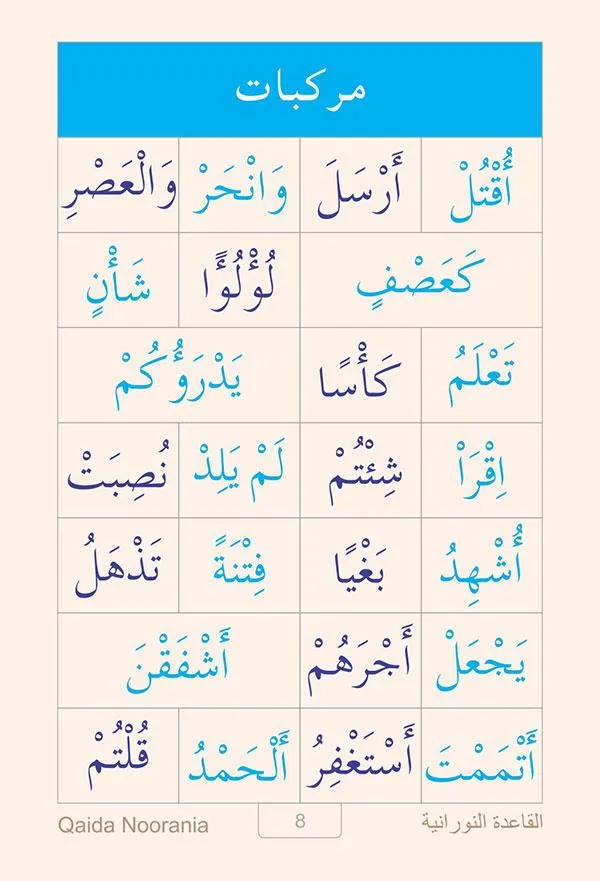 مركبات
أُقْتُلْ أَرْسَلَ وَانْحَرْ وَالْعَصْرِ
كَعَصْفٍ لُوْلُوًا شَأْنٍ
تَعْلَمُ كَأْسًا يَدْرَؤُكُمْ
اِقْرَاْ شِئْتُمْ لَمْ يَلِدْ نُصِبَتْ
أُشْهِدُ بَغْيًا فِتْنَةً تَذْهَلُ
يَجْعَلْ أَجْرَهُمْ أَشْفَقْنَ
أَتْمَمْتَ أَسْتَغْفِرُ أَلْحَمْدُ قُلْتُمْ
Qaida Noorania 8 القاعدة النورانية